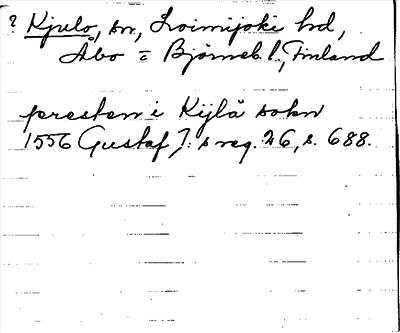 ? Kjulo, sn, Loimijoki hd,
Åbo = Björneb. l., Finland
presten i Kijlå sokn
1556 Gustaf I:s reg. 26, s. 688.